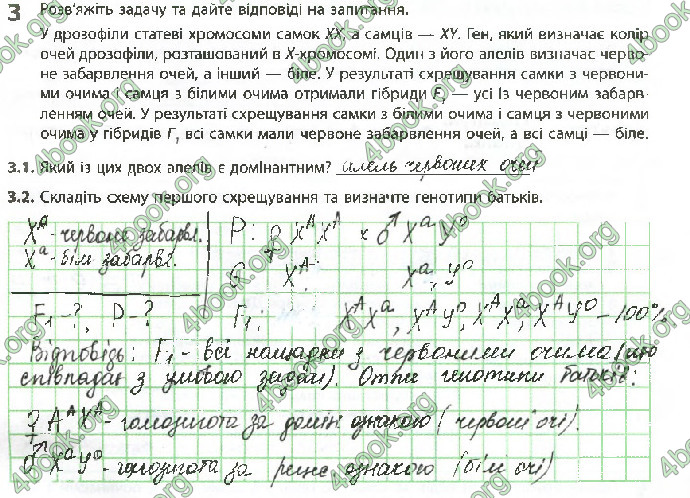 3 Розв'яжіть задачу та дайте відповіді на запитання.
У дрозофіли статеві хромосоми самок XX, а самців — XY. Ген, який визначає колір
очей дрозофіли, розташований в X-хромосомі. Один з його алелів визначає черво-
не забарвлення очей, а інший — біле. У результаті схрещування самки з червони-
ми очима і самця з білими очима отримали гібриди F₁ — усі із червоним забарв-
ленням очей. У результаті схрещування самки з білими очима і самця з червоними
очима у гібридів F₁ всі самки мали червоне забарвлення очей, а всі самці — біле.
3.1. Який із цих двох алелів є домінантним? алель червоних очей
3.2. Складіть схему першого схрещування та визначте генотипи батьків.
Xᴬ - червоне забарвл.
Xᵃ - біле забарвл.
F₁ - ?, P - ?
P: ♀ XᴬXᴬ × ♂ XᵃY⁰
Xᴬ Xᵃ, Y⁰
F₁: XᴬXᵃ, XᴬY⁰, XᴬXᵃ, XᴬY⁰ - 100%
Відповідь: F₁ - всі нащадки з червоними очима (що
співпадає з умовою задачі). Отже генотипи батьків:
♀ XᴬXᴬ - гомозигота за домін ознакою (червоні очі).
♂ XᵃY⁰ - гомозигота за рецес ознакою (білі очі)
4book.org